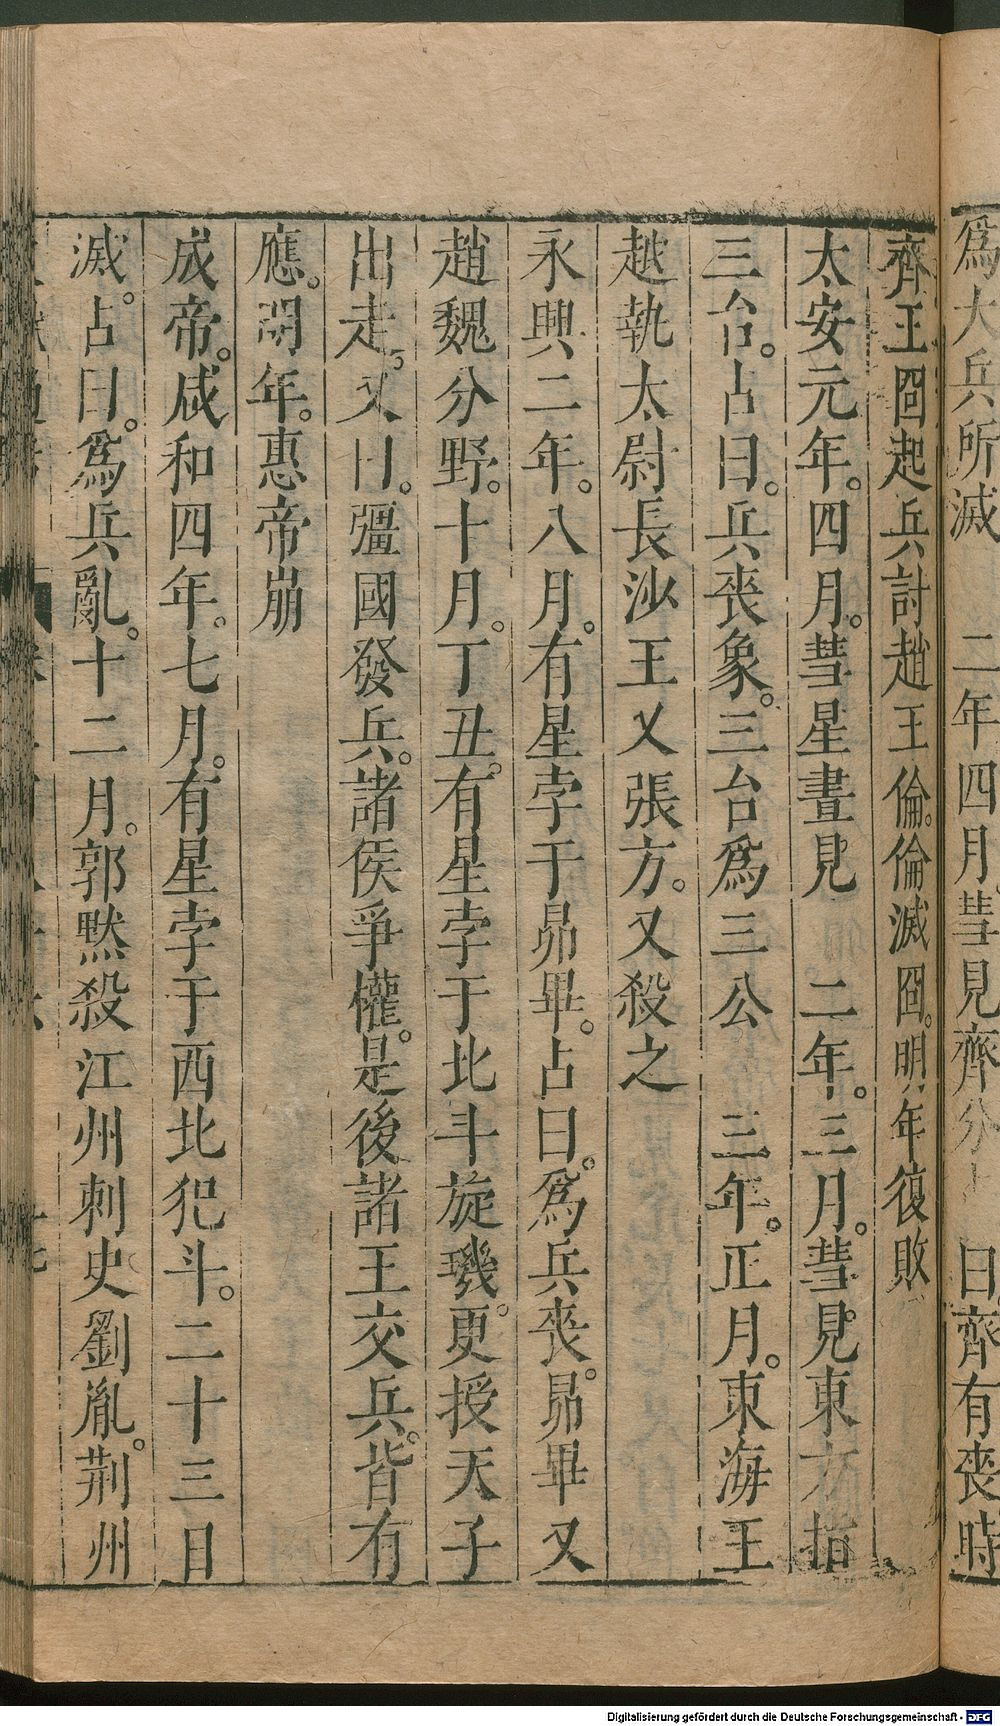 爲大兵所滅　二年四月。彗見齊分 曰。齊有喪時
齊王冏起兵討趙王倫。倫滅冏。明年復敗
太安元年。四月。彗星晝見　二年。三月。彗見東方指
三台。占曰。兵喪象。三台爲三公　三年。正月。東海王
越執太尉長沙王乂張方。又殺之
永興二年。八月。有星孛于昴畢。占曰。爲兵喪。昴畢又
趙魏分野。十月。丁丑。有星孛于北斗旋璣。更授天子
出走。又曰。彊國發兵。諸侯爭權。是後諸王交兵。皆有
應。明年。惠帝崩
成帝。咸和四年。七月。有星孛于西北犯斗。二十三日
滅。占曰。爲兵亂。十二月。郭黙殺江州刺史劉胤。荆州
Digitalisierung gefördert durch die Deutsche Forschungsgemeinschaft - DFG